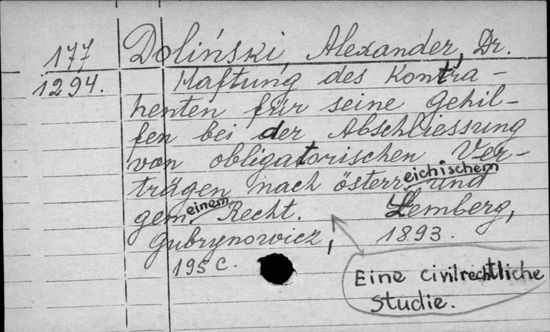 177 Doliński, Alexander, Dr.
1294. Haftung des Kontra-
henten für seine Gehil-
fen bei der Abschliessung
von obligatorischen Ver-
trägen nach österreichischem und
gemeinem Recht. Lemberg,
Gubrynowicz, 1893.
195 C.
Eine civilrechtliche
Studie.